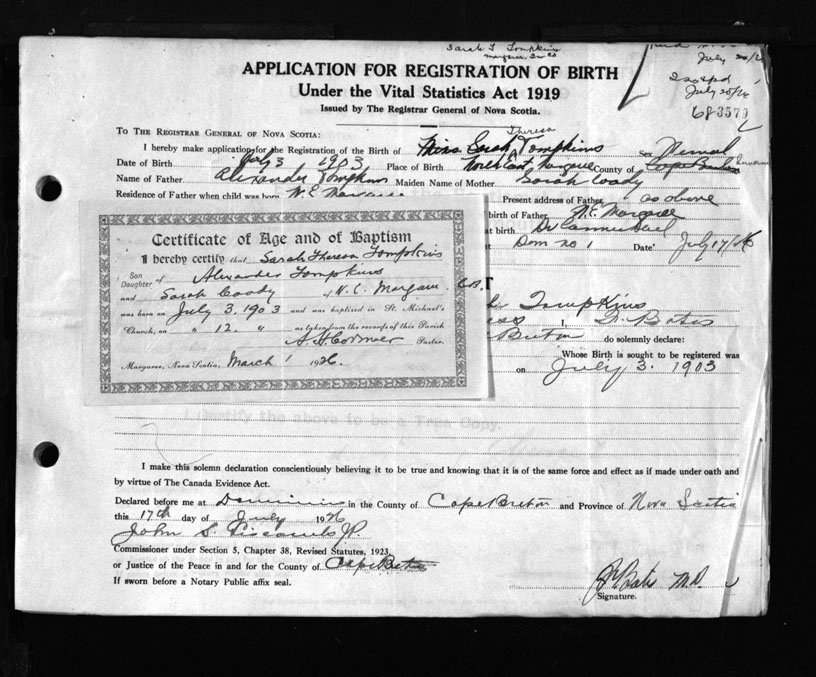 Sarah T Tompkins
Margaree, Inv Co
July
July 20/26
68-3579
APPLICATION FOR REGISTRATION OF BIRTH
Under the Vital Statistics Act 1919
Issued by The Registrar General of Nova Scotia.
TO THE REGISTRAR GENERAL OF NOVA SCOTIA:
Theresa
I hereby make application for the Registration of the Birth of Miss Sarah Tompkins
Date of Birth July 3 1903 Place of Birth North East Margaree County of Cape Breton
Name of Father Alexander Tompkins Maiden Name of Mother Sarah Coady
Residence of Father when child was born N. E. Margaree Present address of Father, as above
birth of Father N.E. Margaree
at birth Dr
Dom no 1 Date July 17/26
Certificate of Age and of Baptism
I hereby certify that Sarah Theresa Tompkins
Son
Daughter of Alexander Tompkins
and Sarah Coady of N. E. Margaree C.B.
was born on July 3, 1903 and was baptized in St. Michael's
Church, on " 12. " as taken from the records of this Parish
A. H. Cormier Pastor.
Margaree, Nova Scotia, March 1 1926.
Tompkins
Bates
Breton do solemnly declare:
Whose Birth is sought to be registered was
on July 3. 1903
I certify the above to be a True Copy.
I make this solemn declaration conscientiously believing it to be true and knowing that it is of the same force and effect as if made under oath and
by virtue of The Canada Evidence Act.
Declared before me at Dominion in the County of Cape Breton and Province of Nova Scotia
this 17th day of July 1926
John S. J.P.
Commissioner under Section 5, Chapter 38, Revised Statutes, 1923,
or Justice of the Peace in and for the County of Cape Breton
If sworn before a Notary Public affix seal.
Bates M.D.
Signature.